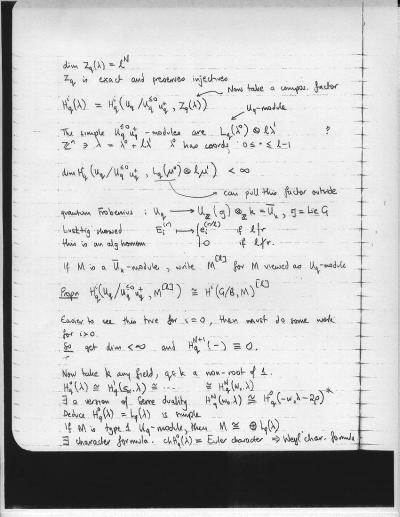 dim Z_q(λ) = l^N
Z_q is exact and preserves injectives
Now take a compos. factor
H^i_q(λ) = H^i(U_q / U_q^{≤0} u_q^+, Z_q(λ))
U_q-module
The simple U_q^{≤0} u_q^+ -modules are L_q(λ^0) ⊗ lλ^1 ?
Z^n ∋ λ = λ^0 + lλ^1 λ^0 has coords 0 ≤ • ≤ l-1
dim H^i_q (U_q / U_q^{≤0} u_q^+, L_q(μ^0) ⊗ lμ^1) < ∞
can pull this factor outside
quantum Frobenius : U_q → U_Z(g) ⊗_Z k = Ū_k, g = Lie G
Lusztig showed E_i^{(r)} ↦ { e_i^{(r/l)} if l|r
this is an alg homom 0 if l∤r.
If M is a Ū_k-module, write M^{[l]} for M viewed as U_q-module
Propn H^i_q(U_q / U_q^{≤0} u_q^+, M^{[l]}) ≅ H^i(G/B, M)^{[l]}
Easier to see this true for i=0, then must do some work
for i>0.
So get dim < ∞ and H_q^{N+1}(-) ≡ 0.
Now take k any field, q∈k a non-root of 1.
H^0_q(λ) ≅ H^1_q(s_α.λ) ≅ ... ≅ H^N_q(w_0.λ)
∃ a version of Serre duality H^N_q(w_0.λ) ≅ H^0_q(-w_0λ-2ρ)*
Deduce H^0_q(λ) = L_q(λ) is simple
If M is type 1 U_q-module, then M ≅ ⊕ L_q(λ)
∃ character formula. ch H^0_q(λ) = Euler character ⇒ Weyl char. formula